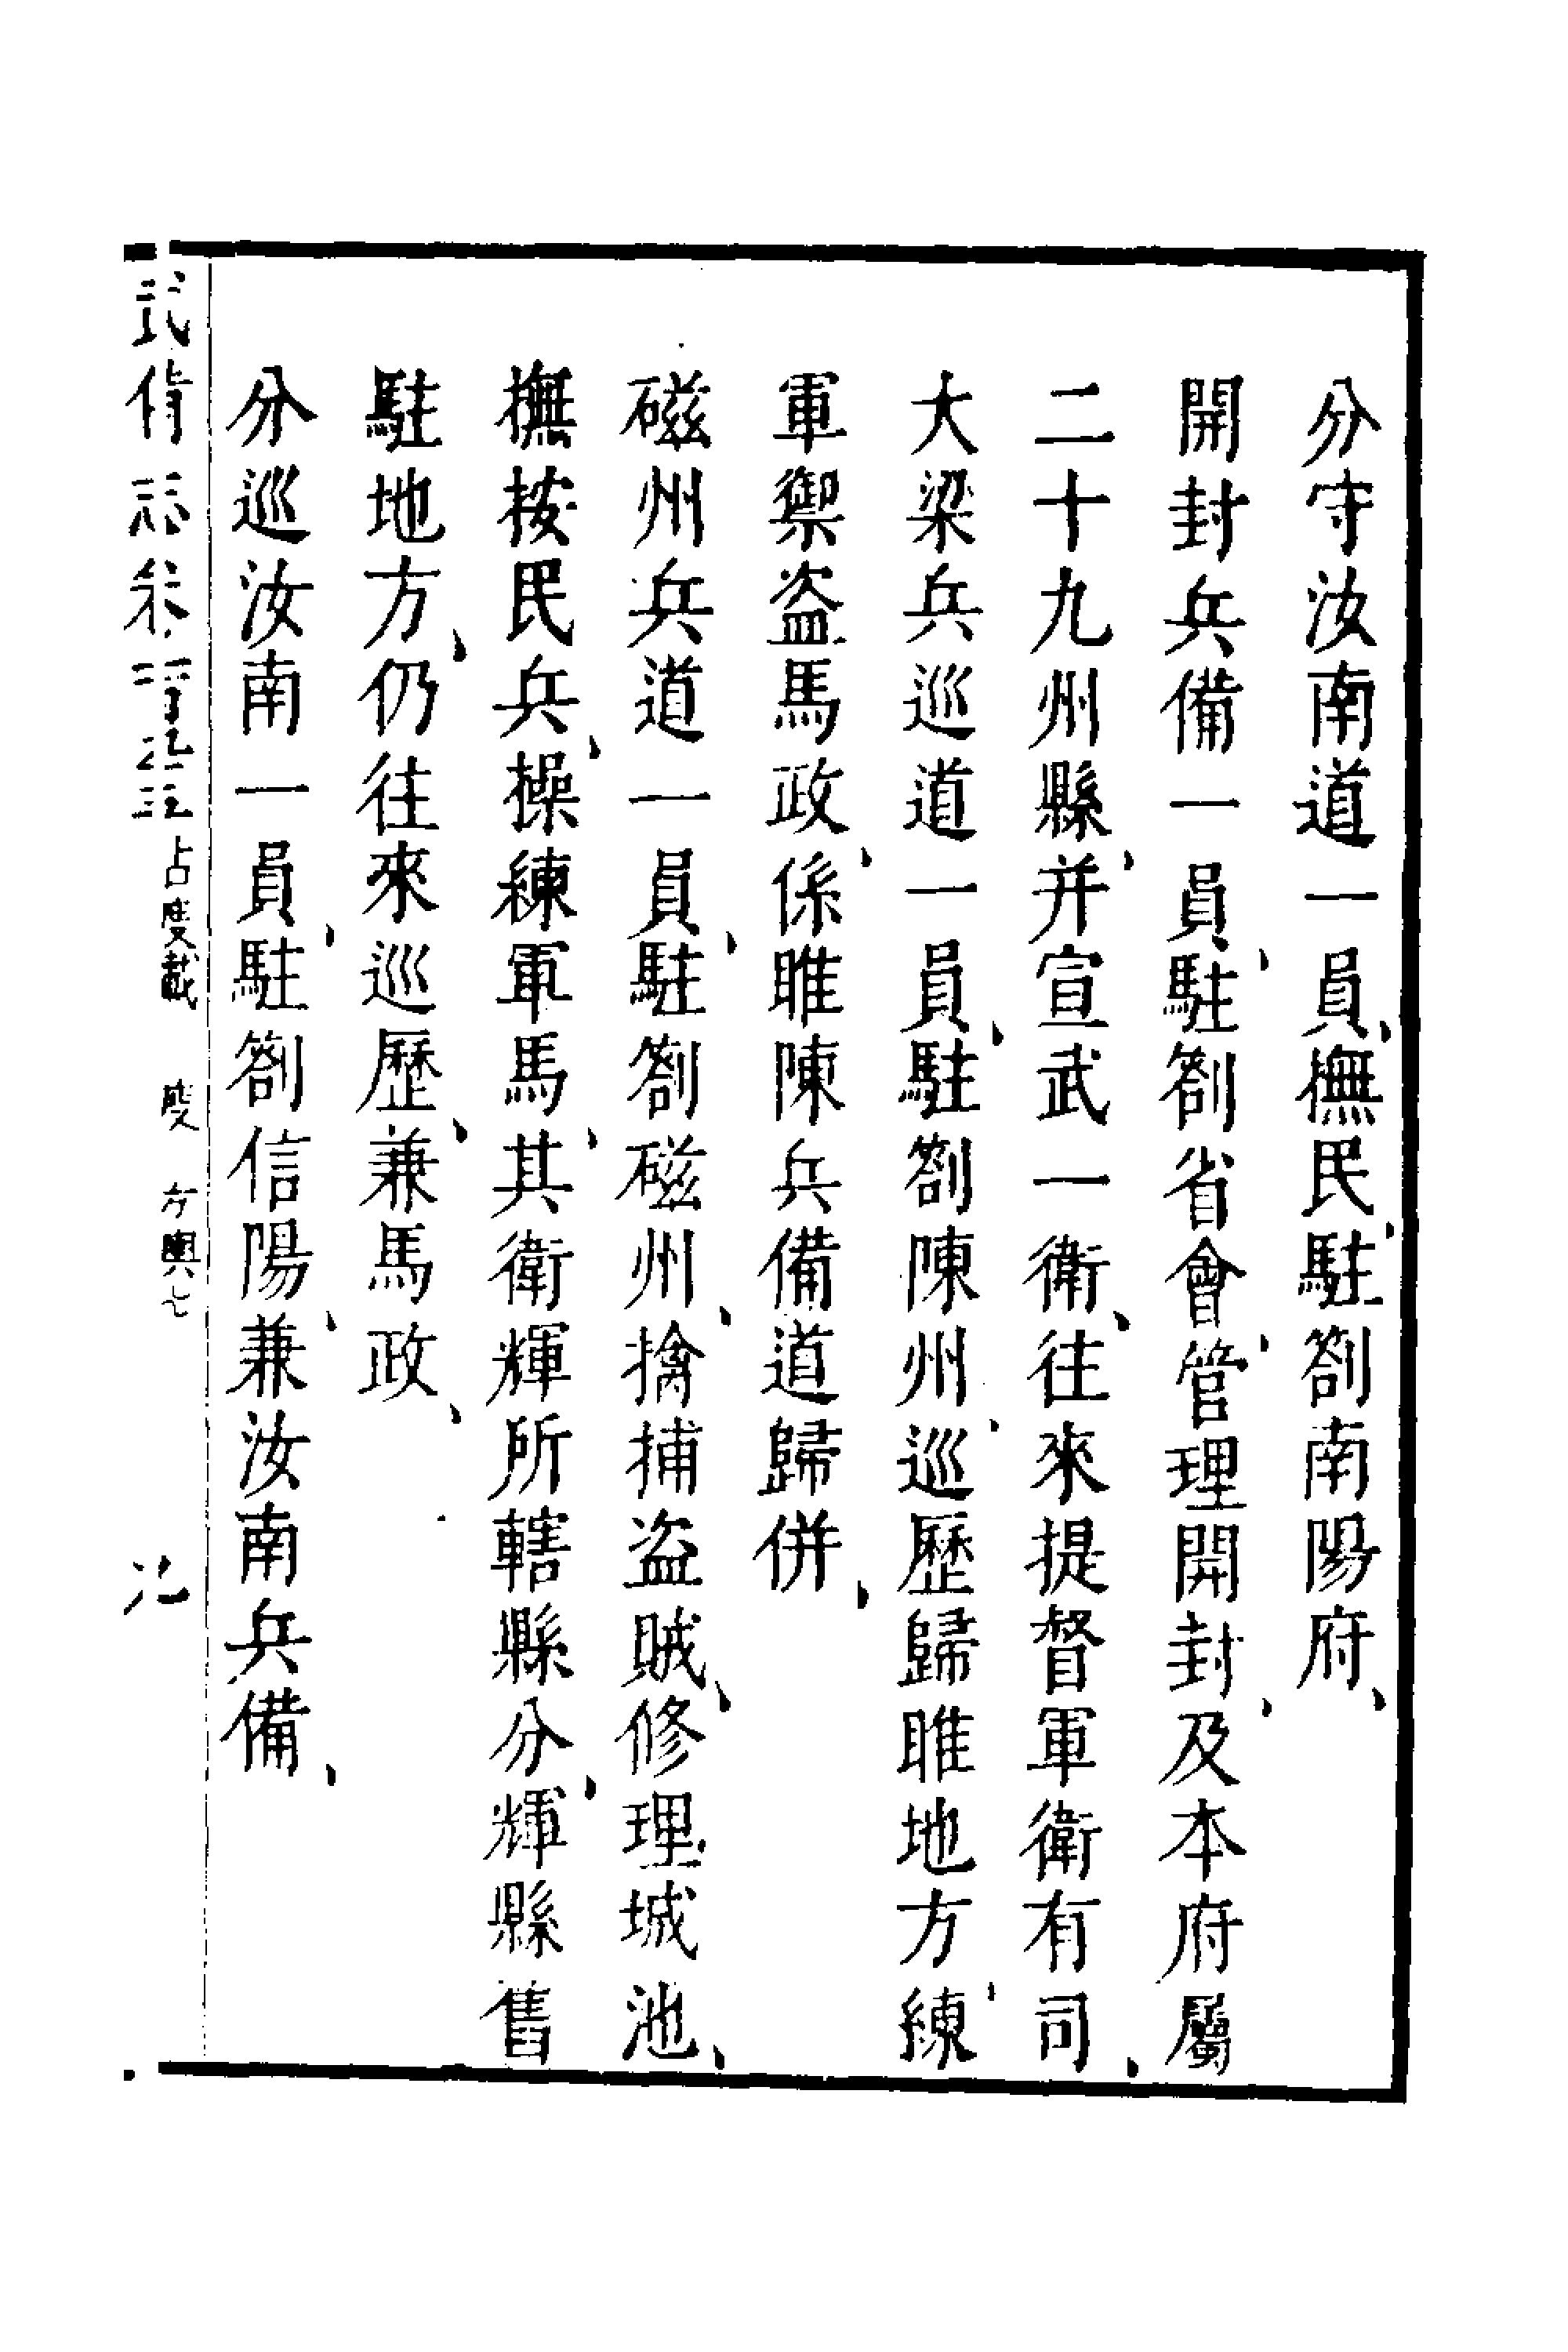 分守汝南道一員、撫民、駐劄南陽府、
開封兵備一員、駐劄省會、管理開封、及本府屬
二十九州縣、并宣武一衛、往來提督軍衛有司、
大梁兵巡道一員、駐劄陳州、巡歷歸睢地方、練
軍禦盗馬政、係睢陳兵備道歸併、
磁州兵道一員、駐劄磁州、擒捕盗賊、修理城池、
撫按民兵、操練軍馬、其衛輝所轄縣分、輝縣舊
駐地方、仍往來巡歷、兼馬政、
分巡汝南一員、駐劄信陽、兼汝南兵備、
武備志卷 占度載 度 方輿七